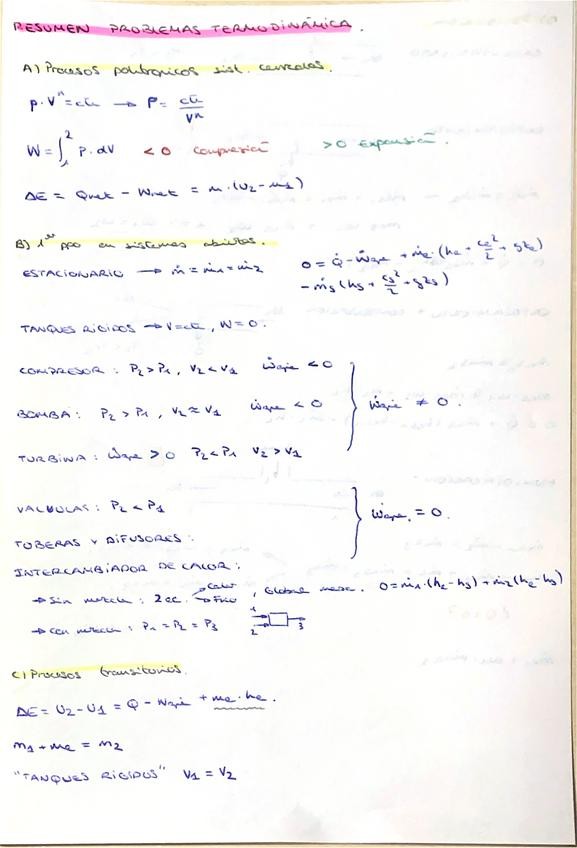 RESUMEN PROBLEMAS TERMODINÁMICA.
A) Procesos politropicos sist. cerrados.
p·Vⁿ = cte → P = cte/Vⁿ
W = ∫₁² P·dV < 0 Compresión > 0 Expansión.
ΔE = Qnet - Wnet = m·(u₂-u₁)
B) 1er ppo en sistemas abiertos.
ESTACIONARIO → ṁ = ṁ₁ = ṁ₂ 0 = Q̇ - Ẇeje + ṁe·(he + ce²/2 + gze)
- ṁs(hs + cs²/2 + gzs)
TANQUES RÍGIDOS → V=cte, W=0.
COMPRESOR: P₂>P₁, V₂<V₁ Ẇeje <0
BOMBA: P₂>P₁, V₂≈V₁ Ẇeje <0 Ẇeje ≠ 0.
TURBINA: Ẇeje >0 P₂<P₁ V₂>V₁
VALVULAS: P₂<P₁
Ẇeje = 0.
TUBERAS Y DIFUSORES:
INTERCAMBIADOR DE CALOR:
→ Sin mezcla: 2 ec. Calor Frio, Global mezc. 0=ṁ₁·(he-hs)+ṁ₂(he-hs)
→ Con mezcla: P₁=P₂=P₃ 1 2 3
C) Procesos transitorios.
ΔE = U₂-U₁ = Q - Weje + me·he.
m₁+me = m₂
"TANQUES RÍGIDOS" V₁=V₂